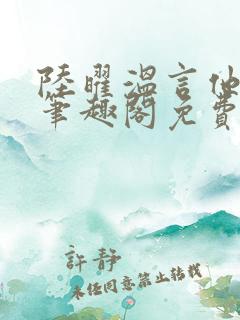 陸曜溫言他
筆趣閣免費
許靜
未經同意禁止轉載